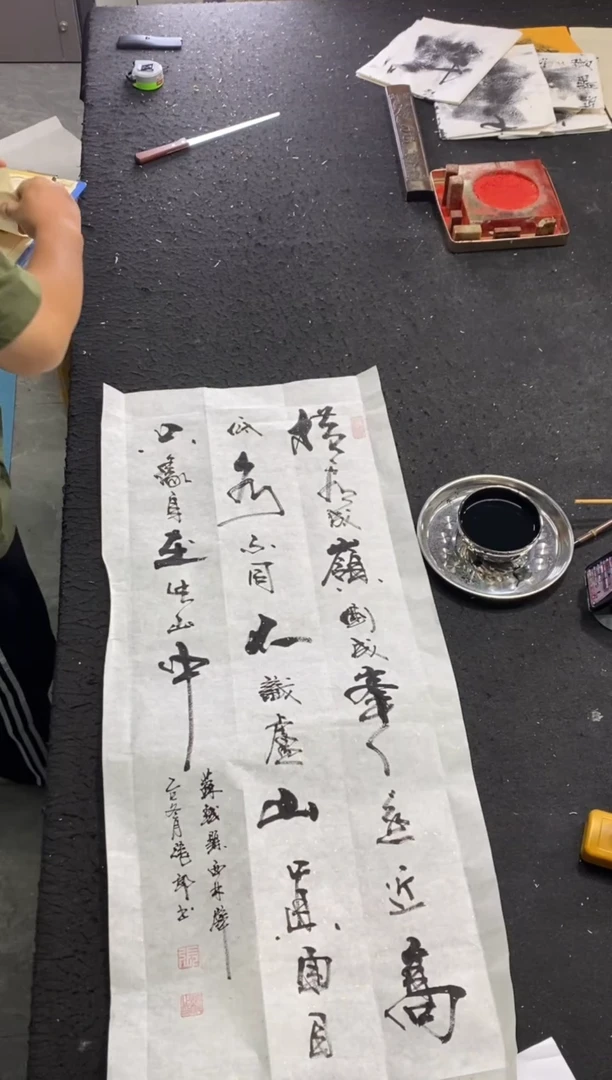 横看成嶺側成峯遠近高
低各不同不識廬山真面目
只緣身在此山中
蘇軾題西林壁
乙巳冬月